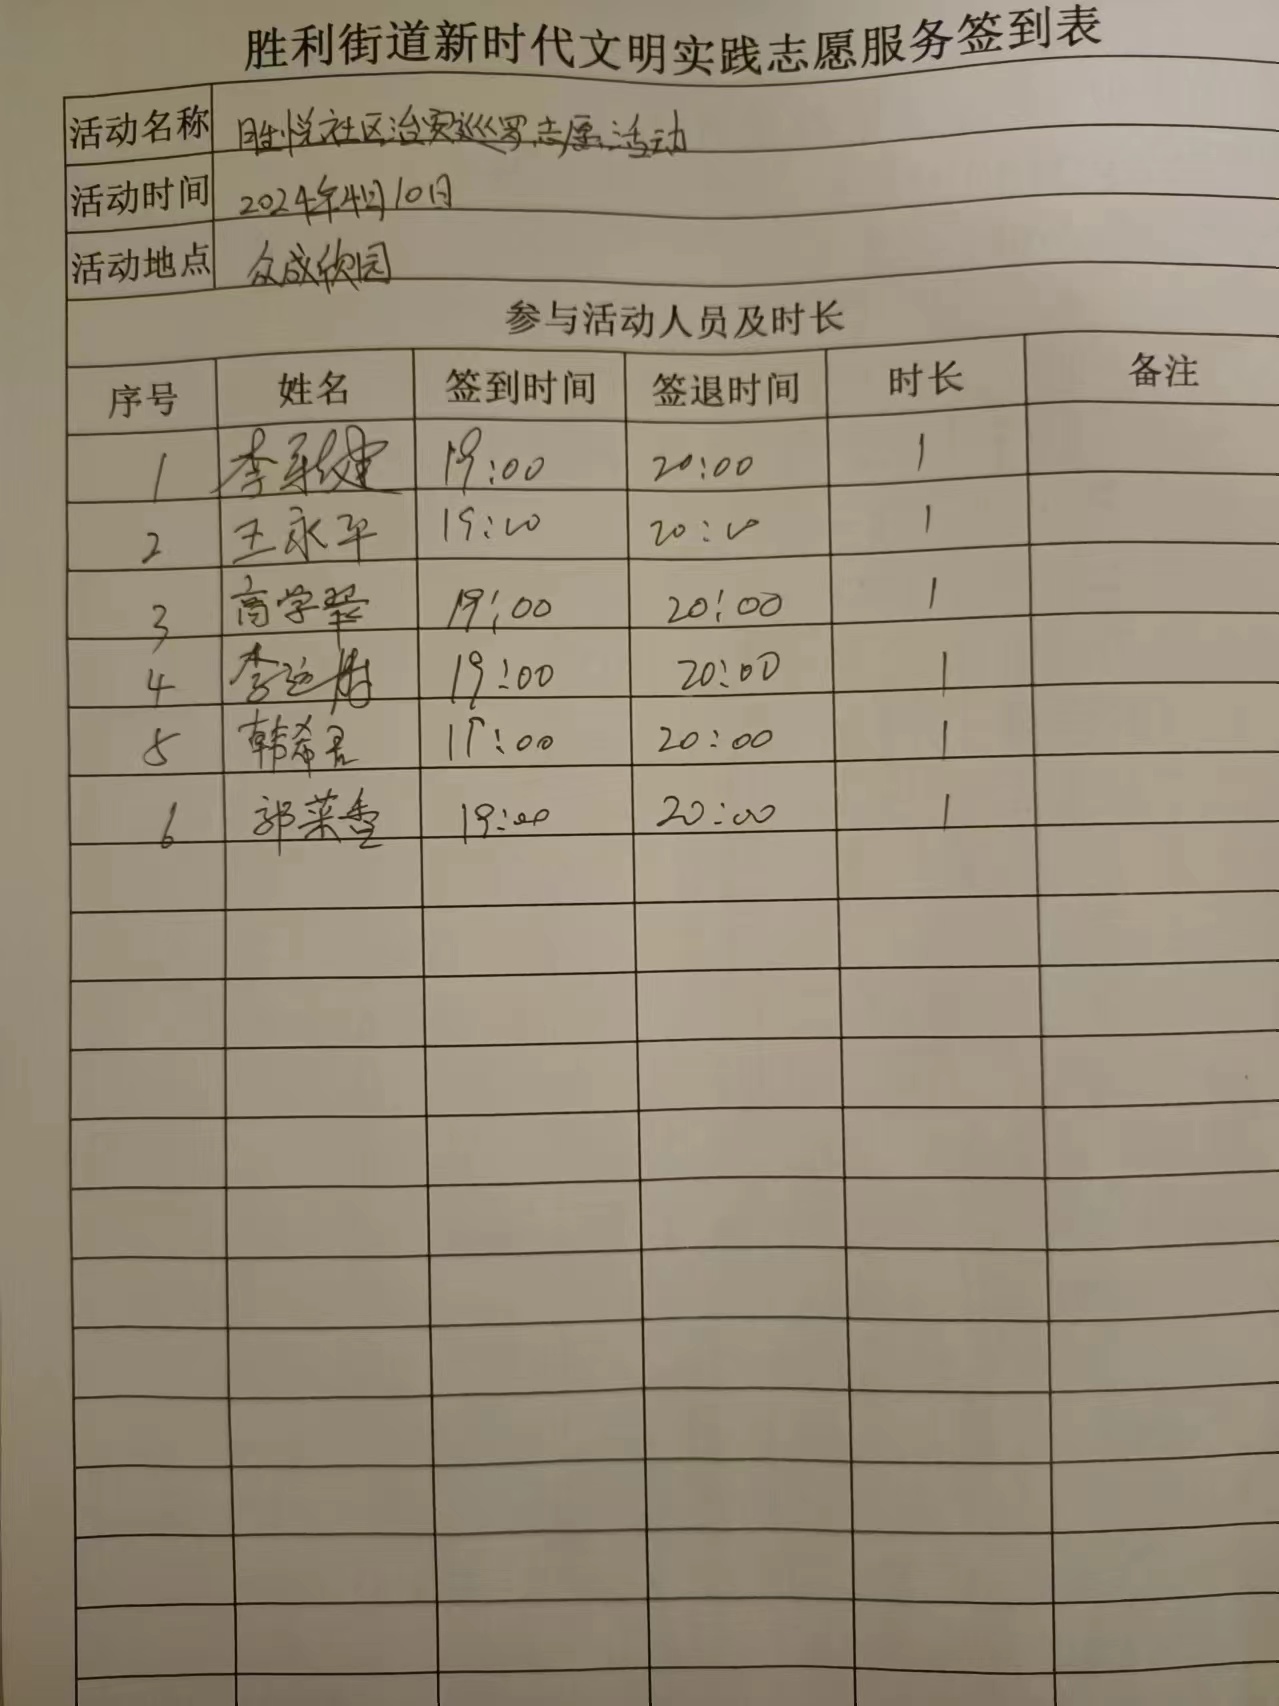 胜利街道新时代文明实践志愿服务签到表
活动名称 胜悦社区治安巡逻志愿活动
活动时间 2024年4月10日
活动地点 众成欣园
参与活动人员及时长
序号 姓名 签到时间 签退时间 时长 备注
1 李 19:00 20:00 1
2 王永平 19:00 20:00 1
3 高学翠 19:00 20:00 1
4 李 19:00 20:00 1
5 韩希君 19:00 20:00 1
6 郭菜香 19:00 20:00 1